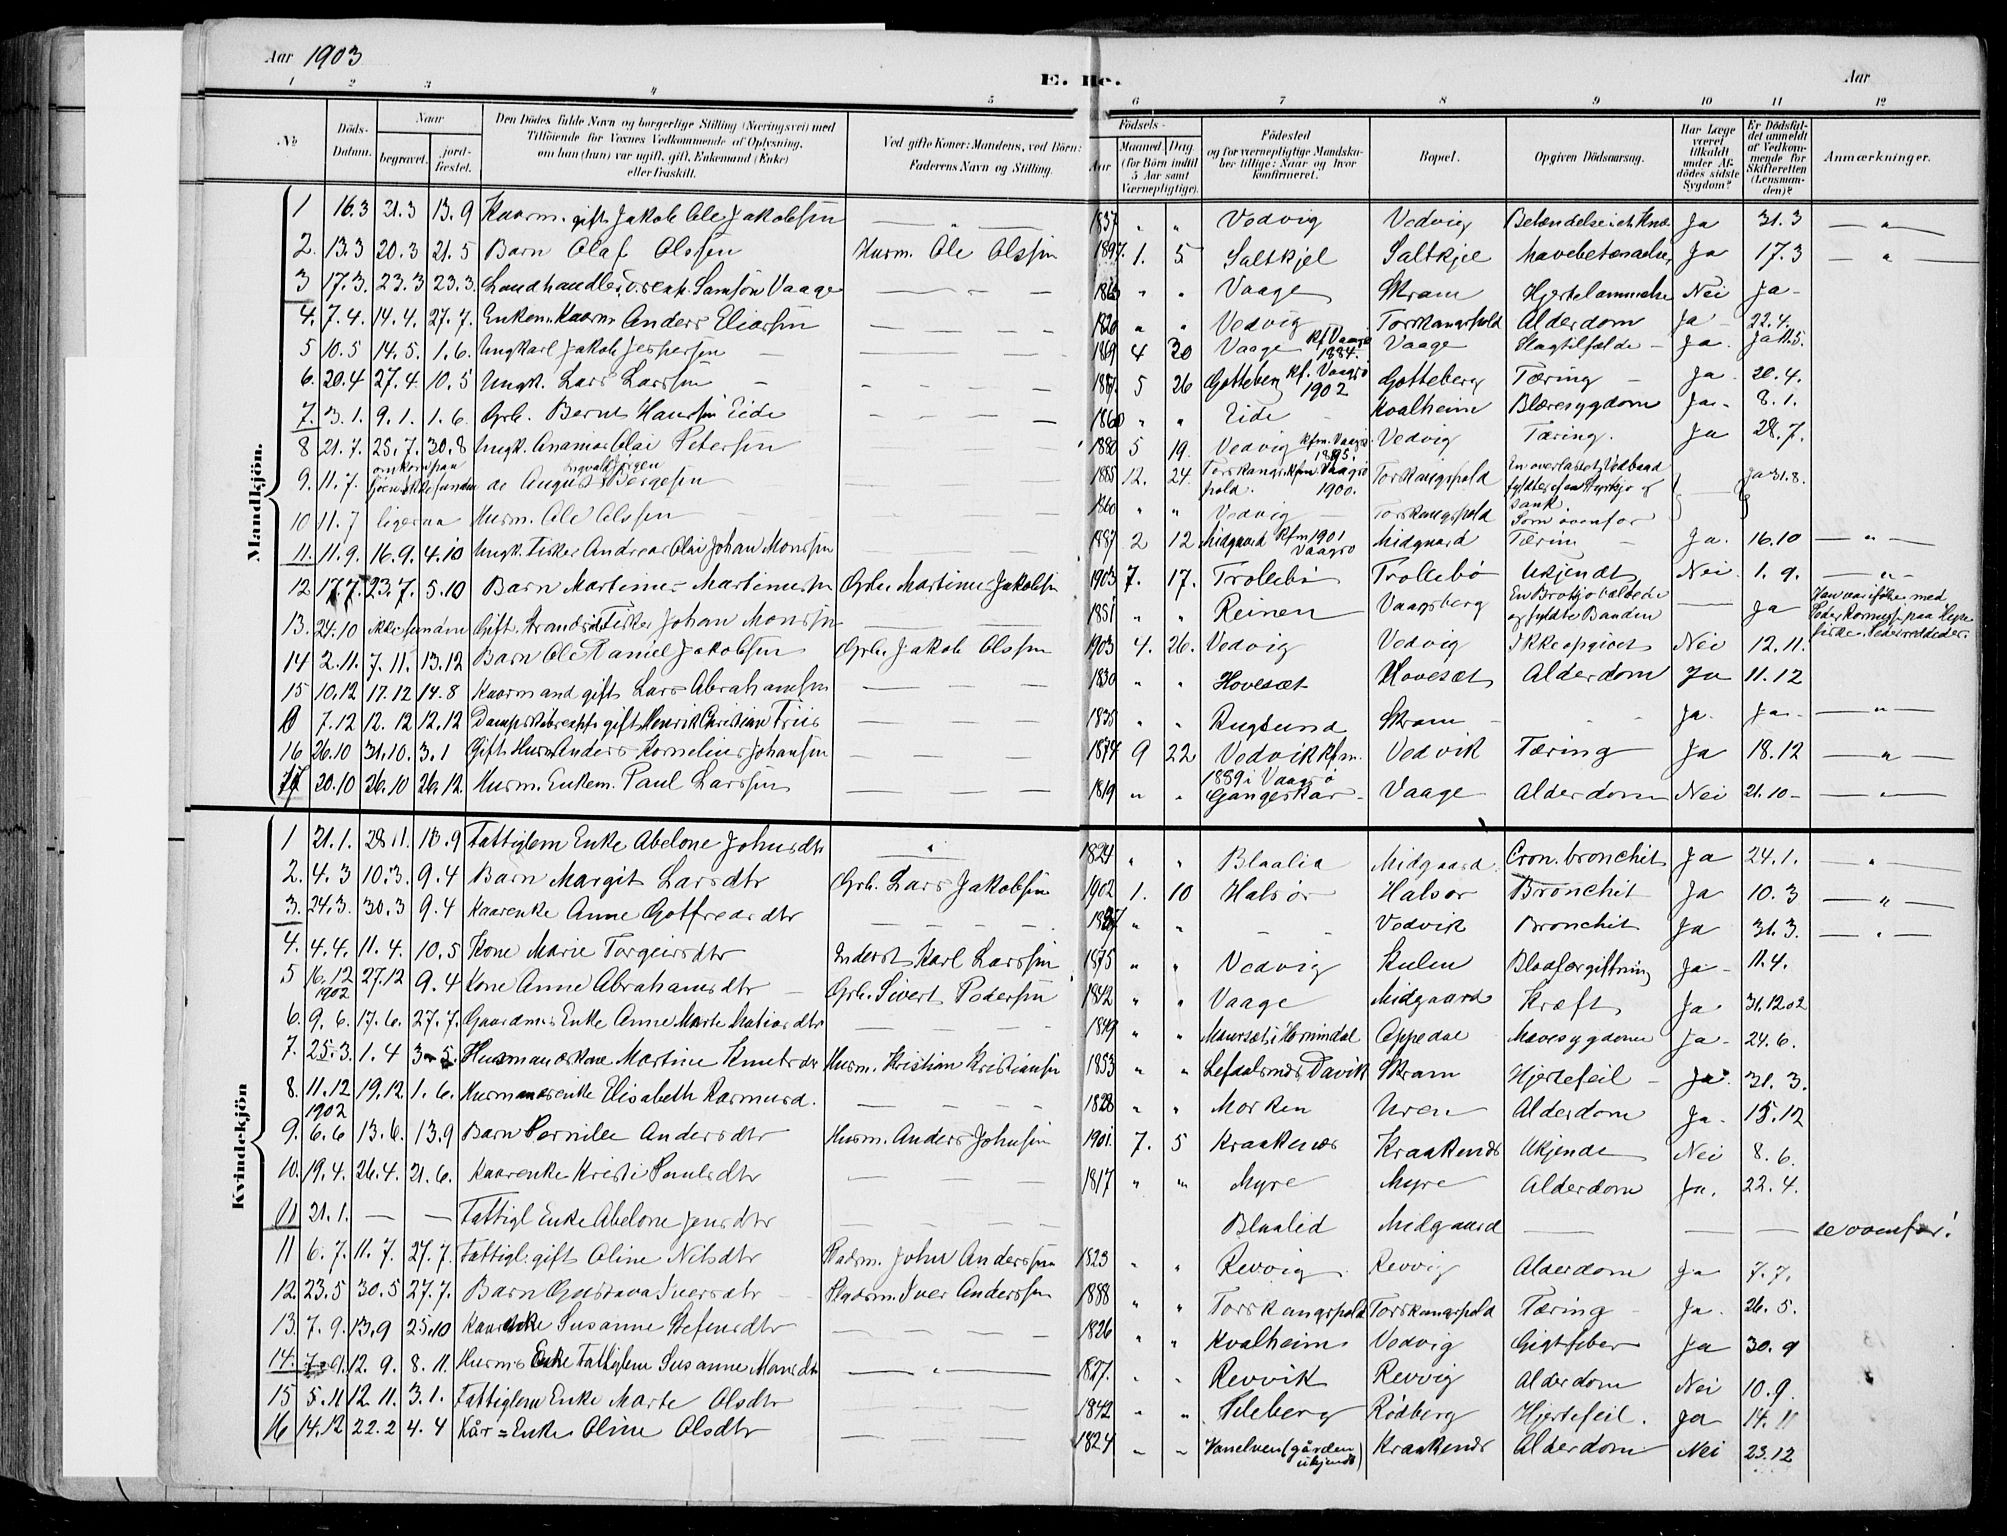 Aar 1903
E. nc.
Aar
1 2 3 4 5 6 7 8 9 10 11 12
No
Döds-Datum.
Naar
begravet.
jord-fæstet.
Den Dödes fulde Navn og borgerlige Stilling (Næringsvei) med
Tilföiende for Voxnes Vedkommende af Oplysning,
om han (hun) var ugift, gift, Enkemand (Enke)
eller fraskilt.
Ved gifte Koner: Mandens, ved Börn:
Faderens Navn og Stilling.
Födsels-
Aar
Maaned. Dag.
(for Börn indtil
5 Aar samt
Værnepligtige).
Födested
og for værnepligtige Mandska-
ber tillige: Naar og hvor
konfirmeret.
Bopæl.
Opgiven Dödsaarsag.
Har Læge
været
tilkaldt
under Af-
dödes sidste
Sygdom?
Er Dödsfal-
det anmeldt
af Vedkom-
mende for
Skifteretten
(Lensman-
den)?
Anmærkninger.
Mandkjön.
1 16.3 21.3 13.9 Kaarm. gift Jakob Ole Jakobsen — „ — 1837 „ „ Vedvig Vedvig Betændelse i et Knæ Ja 31.3 — „ —
2. 13.3 20.3 21.5 Barn Olaf Olssen Husm. Ole Olssen 1897. 1. 5 Saltkjel Saltkjel Mavebetændelse Ja 17.3 — „ —
3 17.3. 23.3 23.3. Landhandler Samson Vaage — „ — 1863 „ „ Vaage Skram Hjertelammelse Nei Ja -
4. 7.4. 14.4. 27.7. Enkem. Kaarm. Anders Eliassen — — — 1820 „ „ Vedvig Torskangerpold Alderdom Ja 22.4.
5 10.5 14.5. 1.6. Ungkarl Jakob Jespersen — — — 1869 4 30 Vaage Kf. Vaagsö 1884. Vaage Slagtilfælde Ja. Ja 11.5.
6. 20.4 27.4. 10.5 Ungk. Lars Larssen — — — 1887 5 26 Gotteberg Kf. Vaagsö 1902 Gotteberg Tæring Ja 20.4.
7. 3.1. 9.1. 1.6. Grb. Bernt Hanssen Eide — — — 1860 „ „ Eide Kvalheim Blæresygdom Ja. 8.1.
8 21.7. 25.7. 30.8 Ungk. Ananias Olai Petersen — — — 1880 5 19. Vedvig Kfm. Vaagsö 1895. Vedvig Tæring. Ja 28.7.
9. 11.7. omkom paa Sjöen ikke funden do August Ingvald Jörgen Börgesen 1885 12. 24. Torskangerpold. Kfm. Vaagsö 1900. Torskangerpold En overlastet Vedbaad fyldtes af en Styrtsjö og sank. Ja 31.8.
10 11.7 ligesaa Husm. Ole Olssen 1860 „ „ Vedvig Torskangerpold Som ovenfor
11. 11.9. 16.9. 4.10 Ungk. Fisker Andreas Olai Johan Monssen — — — 1887 2 12 Midgaard Kfm 1901 Vaagsö Midgaard Tærin Ja. 16.10 — „ —
12 17.7. 23.7. 5.10 Barn Martinus Martinussen Grb. Martinus Jakobsen 1903 7. 17. Trollebö Trollebö Ukjendt Nei 1. 9. — „ —
13. 24.10 ikke funden Gift. Strandsid. Fisker Johan Monssen — — — 1851 „ „ Reinen Vaagsberg En Brotsjö væltede og fyldte Baaden — Ja Han var ifölge med
14 2.11. 7.11. 13.12 Barn Ole Daniel Jakobsen Grb. Jakob Olssen 1903 4. 26. Vedvig Vedvig Ikke opgivet Nei 12.11.
15 10.12 17.12 14.8 Kaarmand gift Lars Abrahamsen — — — 1830 „ „ Hovesæt Hovesæt Alderdom Ja 11.12
0 7.12 12.12 12.12 Dampskibsexp. gift Henrik Christian Friis — — — 1835 „ „ Rugsund Skram - - Ja. Ja. — „ —
16 26.10 31.10. 3.1 Gift Husm. Anders Kornelius Johansen — — — 1874 9 22 Vedvik Kfm. 1889 i Vaagsö Vedvik Tæring Ja 18.12 — „ —
17 20.10 26.10 26.12. Husm. Enkem. Paul Larssen — — — 1819 „ „ Gangeskar Vaage Alderdom Nei 21.10 — „ —
Kvindekjön
1 21.1. 28.1. 13.9 Fattiglem Enke Abelone Johnsdtr — „ — 1824 „ „ Blaalia Midgaard Cron. bronchit Ja 24.1. — „ —
2. 4.3 10.3. 9.4 Barn Margit Larsdtr Grb. Lars Jakobsen 1902 1. 10 Halsör Halsör Bronchit Ja 10.3 — „ —
3. 24.3. 30.3 9.4 Kaarenke Anne Gotfredsdtr — — — „ „ - - Vedvik Bronchit Ja 31.3. — „ —
4. 4.4. 11.4. 10.5 Kone Marie Torgeirsdtr Inderst Karl Larssen 1875 „ „ Vedvig Kulen Blodforgiftning Ja - 11.4.
5 16.12 1902 27.12 9.4 Kone Anne Abrahamsdtr Grb. Sivert Pedersen 1842 „ „ Vaage Midgaard Kræft Ja 31.12.02
6. 9.6. 17.6. 27.7. Gaardmds Enke Anne Marte Matiasdtr — — — 1849 „ „ Maurset i Hornindal Oppedal Mavesygdom Ja - 24.6.
7. 25.3. 1.4 3-5. Husmandskone Martine Knutsdr Husm. Kristian Kristiansen 1853 „ „ Lefdalsnes Davik Skram Hjertefeil - Ja. 31.3.
8. 11.12 1902 19.12 1.6. Husmandsenke Elisabeth Rasmusd. — — — 1828 „ „ Morken Uren Alderdom Ja. 15.12
9. 6.6 13.6. 13.9 Barn Pernille Andersdtr Husm. Anders Johnsen 1901. 7. 5 Kraakenes Kraakenes Ukjendt Nei 8.6.
10. 19.4. 26.4. 21.6. Kaarenke Kristi Paulsdtr — — — 1817 „ „ Myre Myre Alderdom Ja. 22.4.
01 21.1. — — Fattigl Enke Abelone Jensdtr — — — Blaalid Midgaard — — — se ovenfor!
11 6.7. 11.7. 27.7. Fattigl. gift Oline Nilsdtr Pladsm. John Anderssen 1823 „ „ Revvig Revvig Alderdom Ja 7.7.
12. 23.5 30.5 27.7. Barn Gustava Iversdtr Pladsm. Iver Anderssen 1888 „ „ Torskangerpold Torskangerpold Tæring Ja. 26.5.
13. 7.9. 13.9 25.10 Kaarenke Susanne Stefensdtr — — — 1826 „ „ Kvalheim Vedvig Gigtfeber Ja 30.9
14. 7.9. 12.9. 8.11. Husmds Enke Fattiglem Susanne Monsdtr — „ — 1827. „ „ Revvik Revvig Alderdom Nei 10.9.
15 5.11 12.11. 3.1. Fattiglem Enke Marte Olsdtr — — — 1842 „ „ Seleberg Rödberg Hjertefeil. Ja 14.11
16 14.12 22.2 4.4 Kår = Enke Oline Olsdtr — — — 1824 „ „ Vanelven (gården ukjendt) Kraakenes Alderdom Nei 23.12